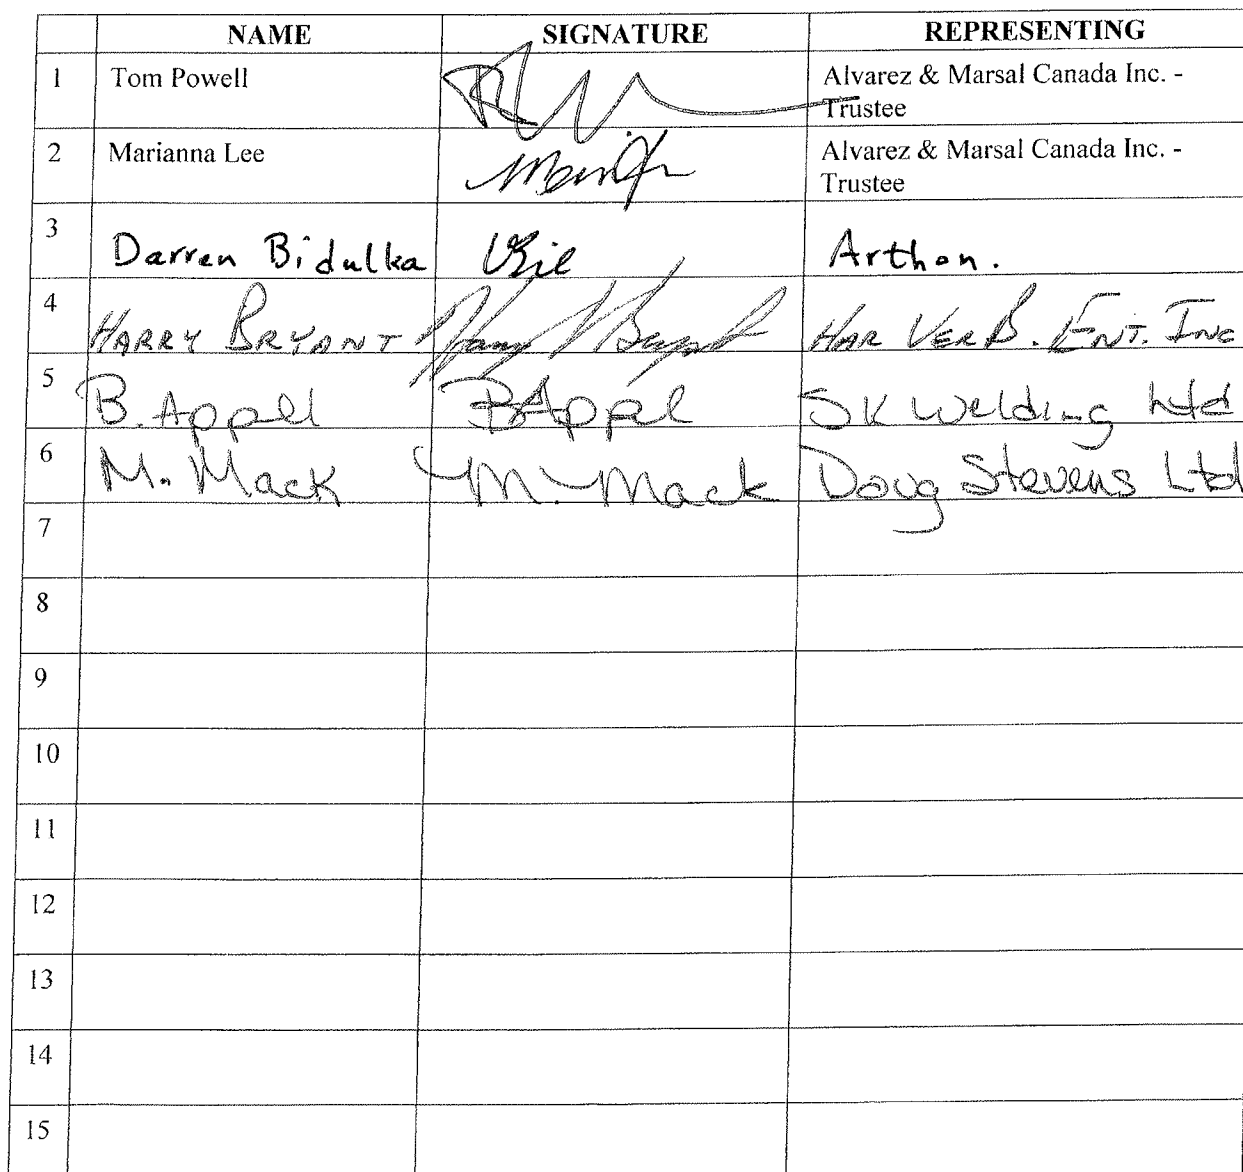 NAME SIGNATURE REPRESENTING
1 Tom Powell Alvarez & Marsal Canada Inc. -
Trustee
2 Marianna Lee Alvarez & Marsal Canada Inc. -
Trustee
3 Darren Bidulka Arthon.
4 HARRY BRYANT Harry Bryant HAR VER B. ENT. INC
5 B. Appell BAppel SK Welding Ltd
6 M. Mack M. Mack Doug Stevens Ltd
7
8
9
10
11
12
13
14
15